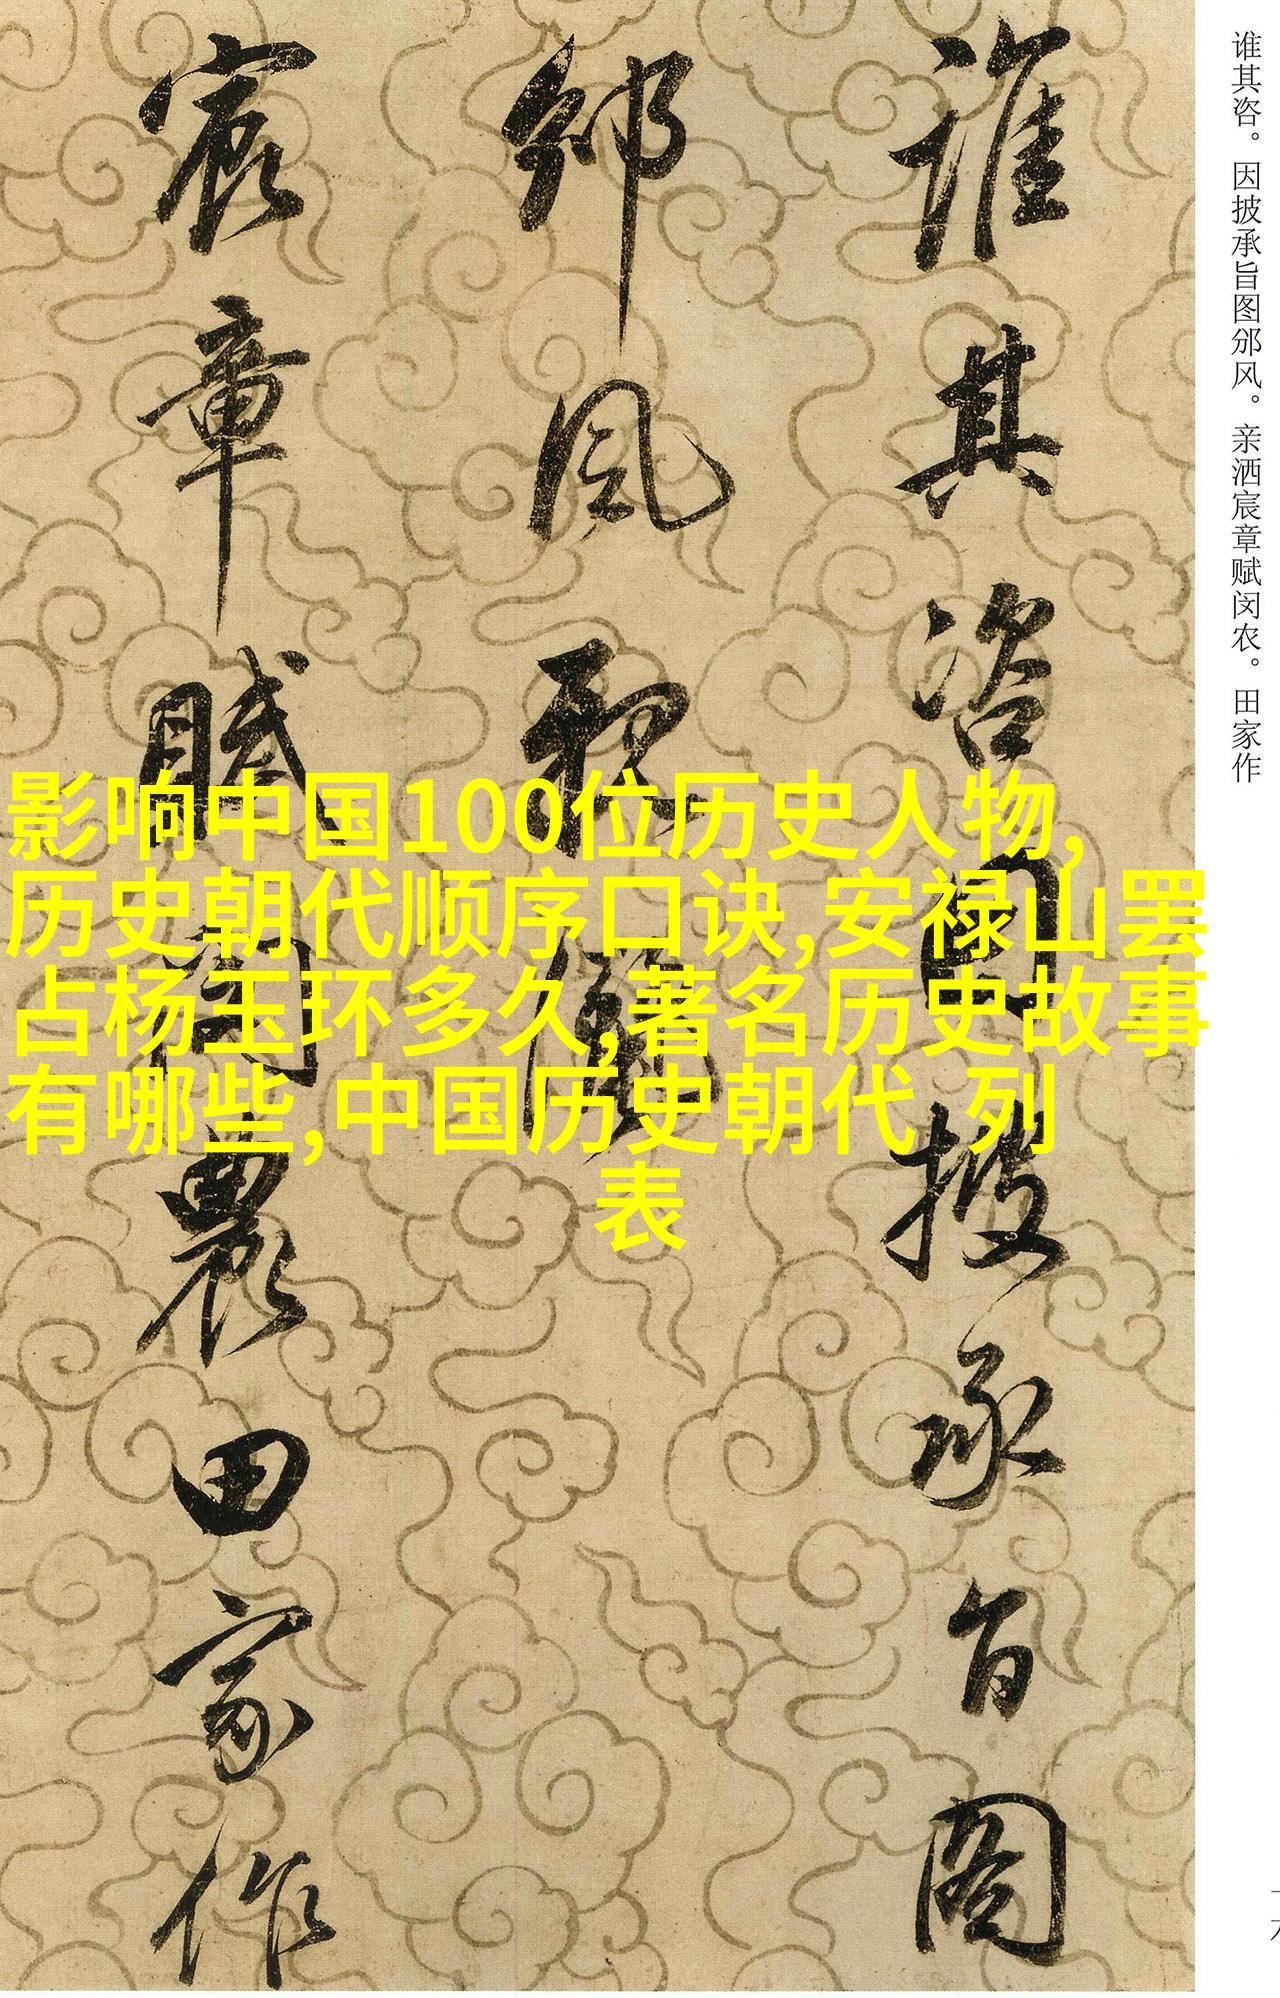 谁其咨。因披承旨图邠风。亲洒宸章赋闵农。田家作
誰其咨因披承旨圖
邠風親灑
宸章賦閔農田家作
影响中国100位历史人物,
历史朝代顺序口诀,安禄山罢
占杨玉环多久,著名历史故事
有哪些,中国历史朝代 列
表